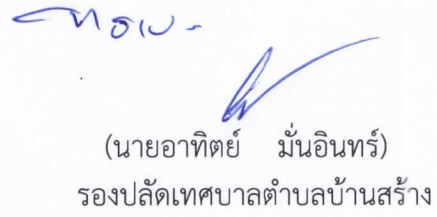 ทราบ
(นายอาทิตย์ มั่นอินทร์)
รองปลัดเทศบาลตำบลบ้านสร้าง